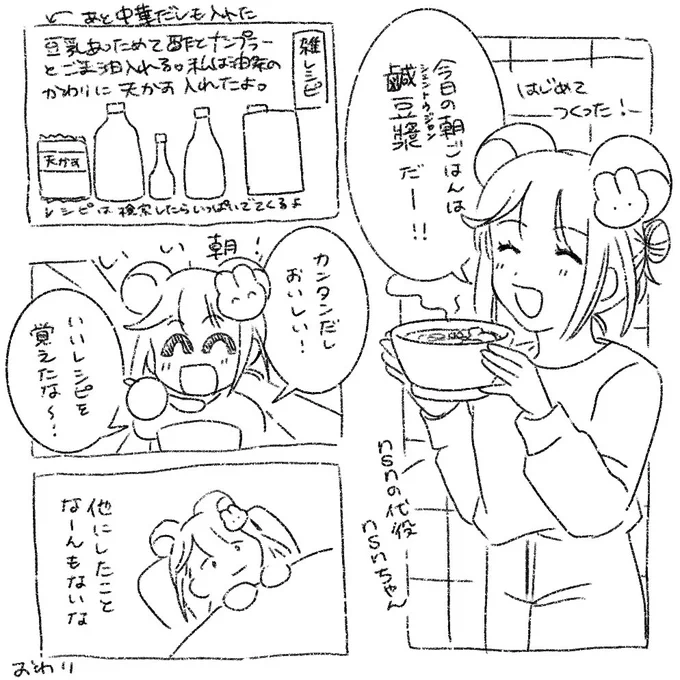 今日の朝ごはんは
鹹豆漿
シェントウジャン
だー!!
はじめて
つくった!
nsnの代役
nsnちゃん
あと中華だしも入れた
雑レシピ
豆乳あっためて酢とナンプラー
とごま油入れる。私は油条の
かわりに天かす入れたよ。
天かす
レシピは検索したらいっぱいでてくるよ
いい朝!
カンタンだし
おいしい!
いいレシピを
覚えたな〜!
他にしたこと
なーんもないな
おわり